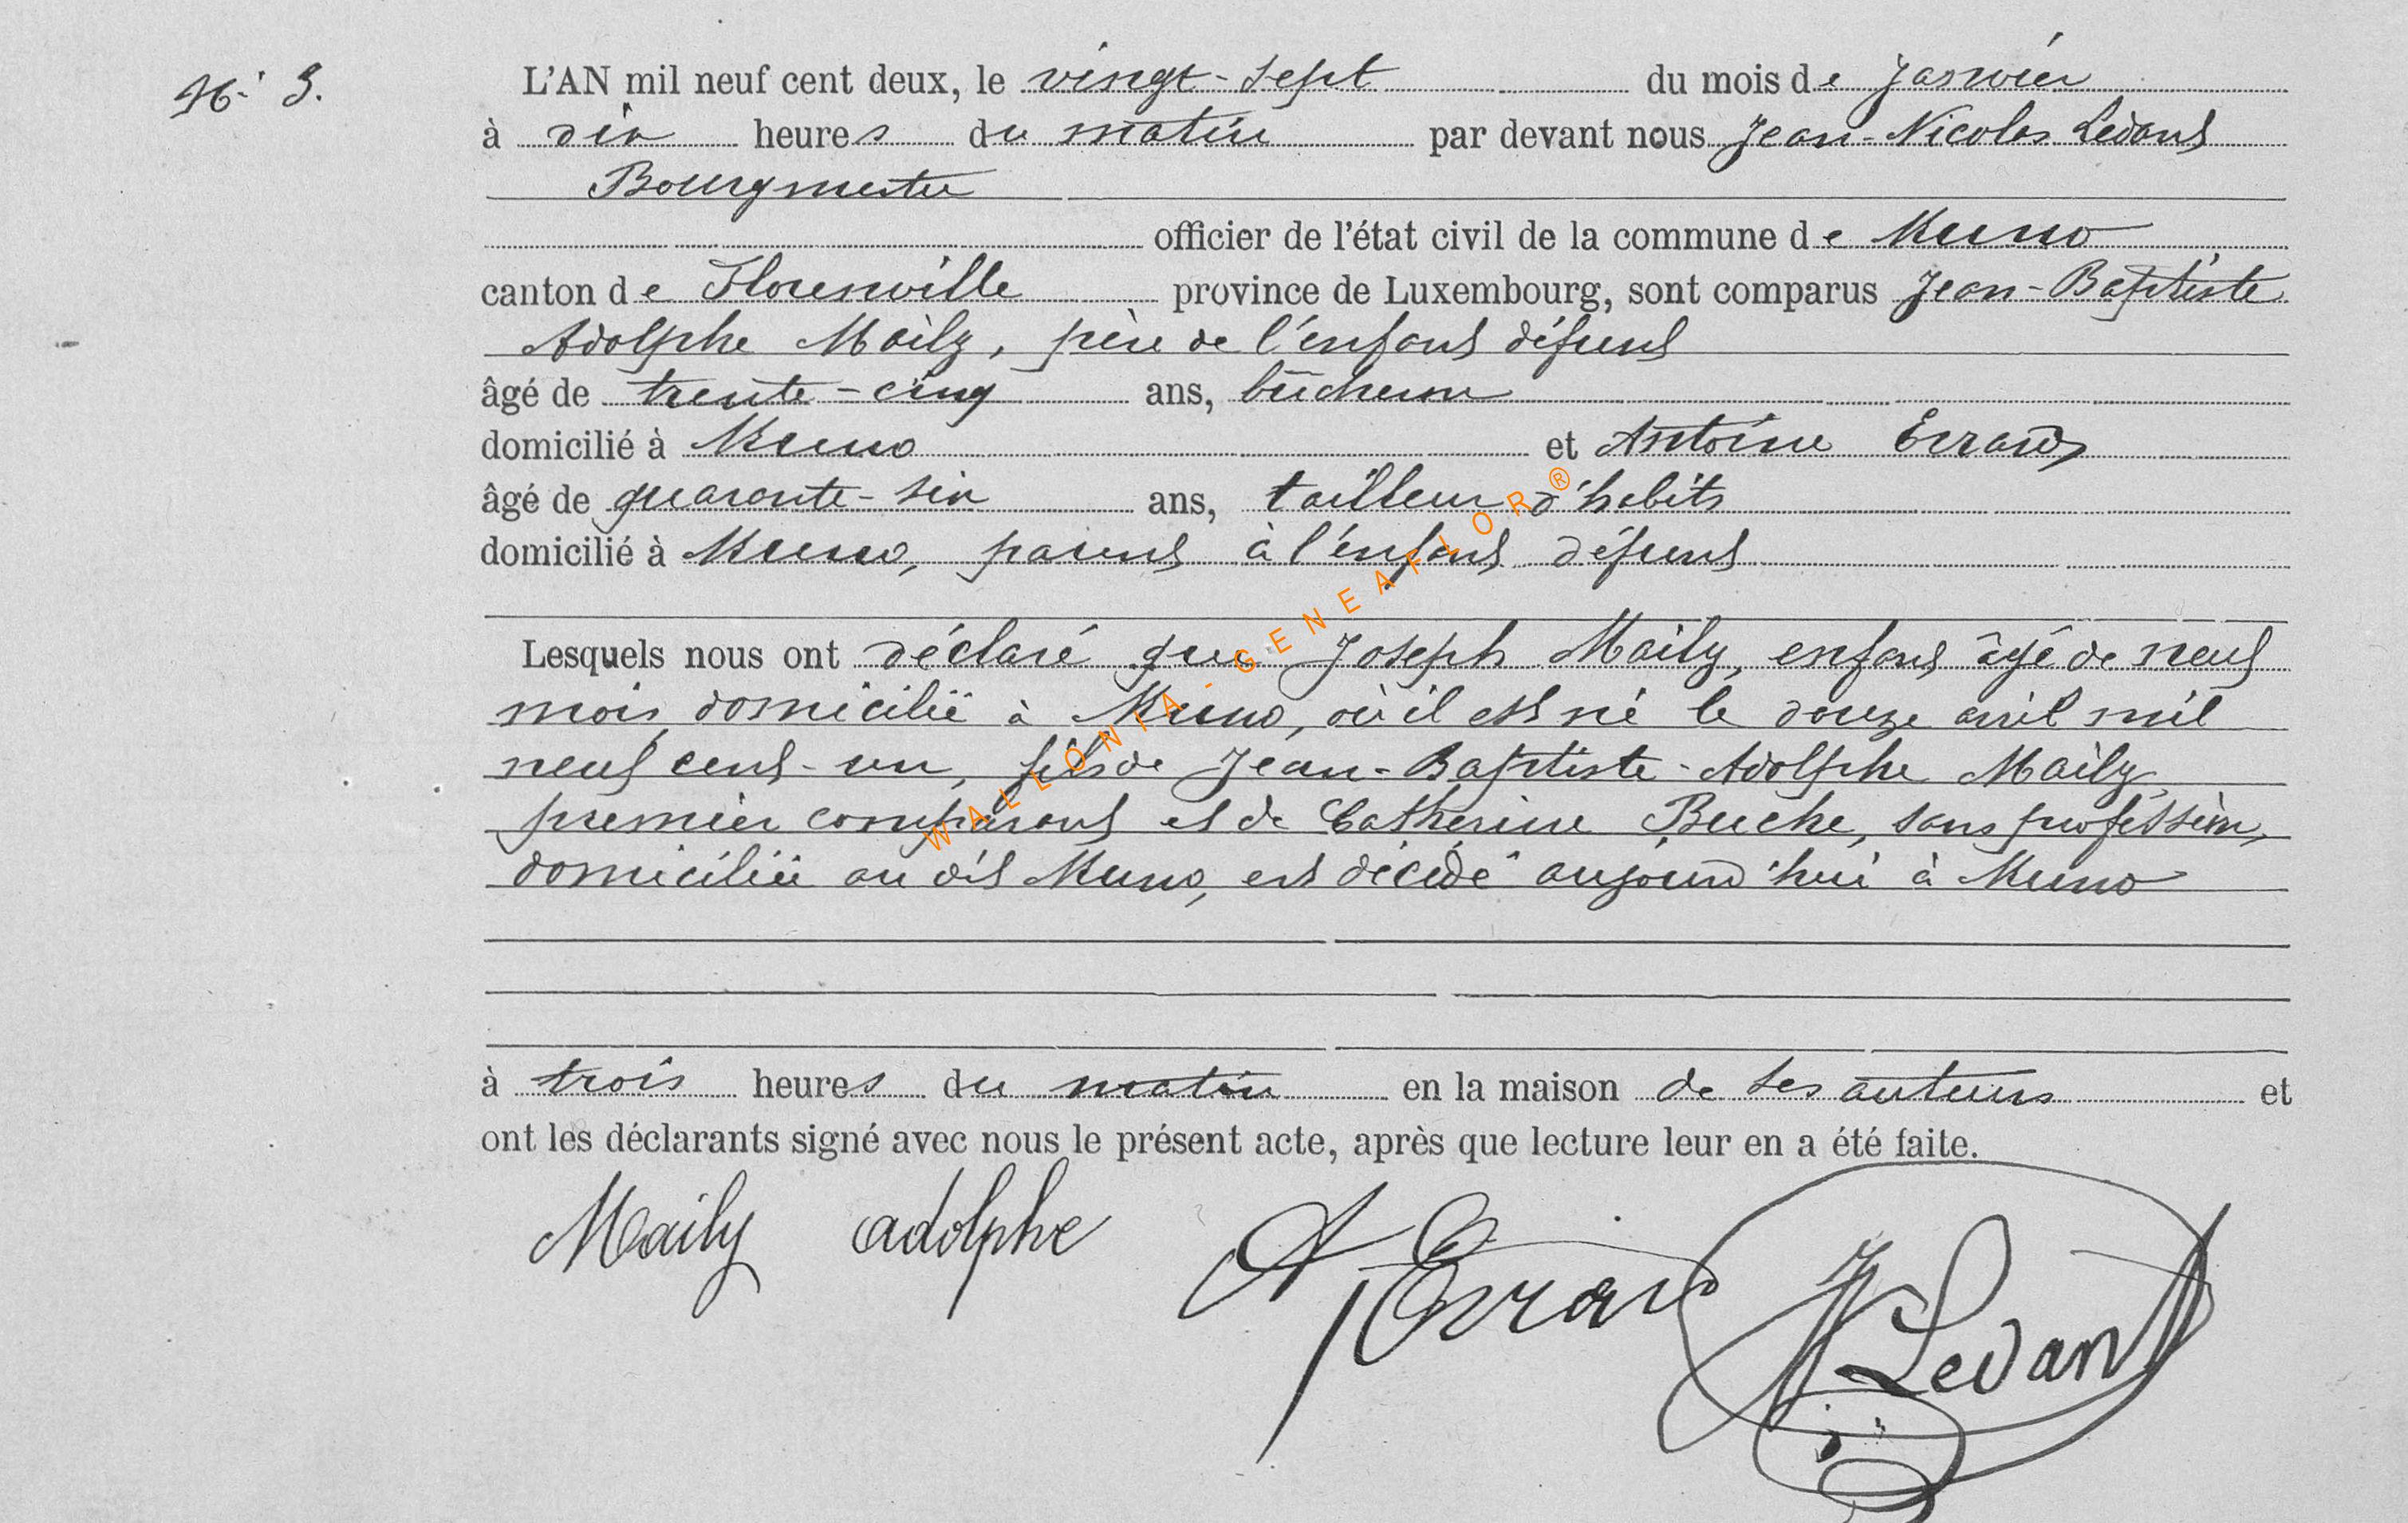 N° 3.
L'AN mil neuf cent deux, le vingt-sept du mois de janvier
à dix heures du matin par devant nous Jean-Nicolas Ledant
Bourgmestre
officier de l'état civil de la commune de Muno
canton de Florenville province de Luxembourg, sont comparus Jean-Baptiste
Adolphe Maily, père de l'enfant défunt
âgé de trente-cinq ans, bûcheron
domicilié à Muno et Antoine Errard,
âgé de quarante-six ans, tailleur d'habits
domicilié à Muno, parent à l'enfant défunt
Lesquels nous ont déclaré que Joseph Maily, enfant âgé de neuf
mois, domicilié à Muno, où il est né le douze avril mil
neuf cent-un, fils de Jean-Baptiste-Adolphe Maily
premier comparant et de Catherine Buche, sans profession,
domiciliée au dit Muno, est décédé aujourd'hui à Muno
à trois heures du matin en la maison de ses auteurs et
ont les déclarants signé avec nous le présent acte, après que lecture leur en a été faite.
Maily adolphe A Errard JN Ledant
WALLONIA-GENEAFLOR®